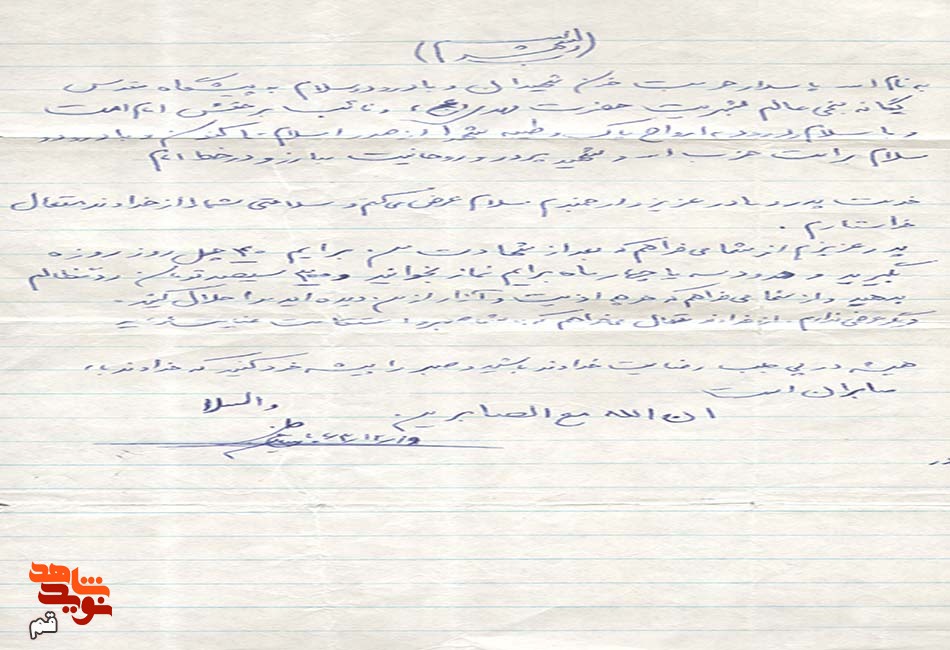 به نام الله پاسدار حرمت خون شهیدان و با درود و سلام به پیشگاه مقدس
یگانه منجی عالم بشریت حضرت مهدی (عج) و نائب برحقش امام امت
و با سلام و درود به ارواح پاک و طیبه شهدا از صدر اسلام تا کنون و با درود و
سلام بر امت حزب الله و شهید پرور و روحانیت مبارز و در خط امام
خدمت پدر و مادر عزیز و ارجمندم سلام عرض می‌کنم و سلامتی شما را از خداوند متعال
خواستارم .
پدر عزیزم از شما می‌خواهم که بعد از شهادت من برایم ۴۰ چهل روز روزه
بگیرید و حدود سه یا چهار ماه برایم نماز بخوانید و ۳۰۰ سیصد تومان رد مظالم
بدهید و از شما می‌خواهم که هرچه اذیت و آزار از من دیده‌اید مرا حلال کنید .
دیگر عرضی ندارم . از خداوند متعال می‌خواهم که به شما صبر و استقامت عنایت
همیشه در پی جلب رضایت خداوند باشید و صبر را پیشه خود کنید که خداوند با
صابران است
ان الله مع الصابرین
والسلام
نوید شاهد
قم